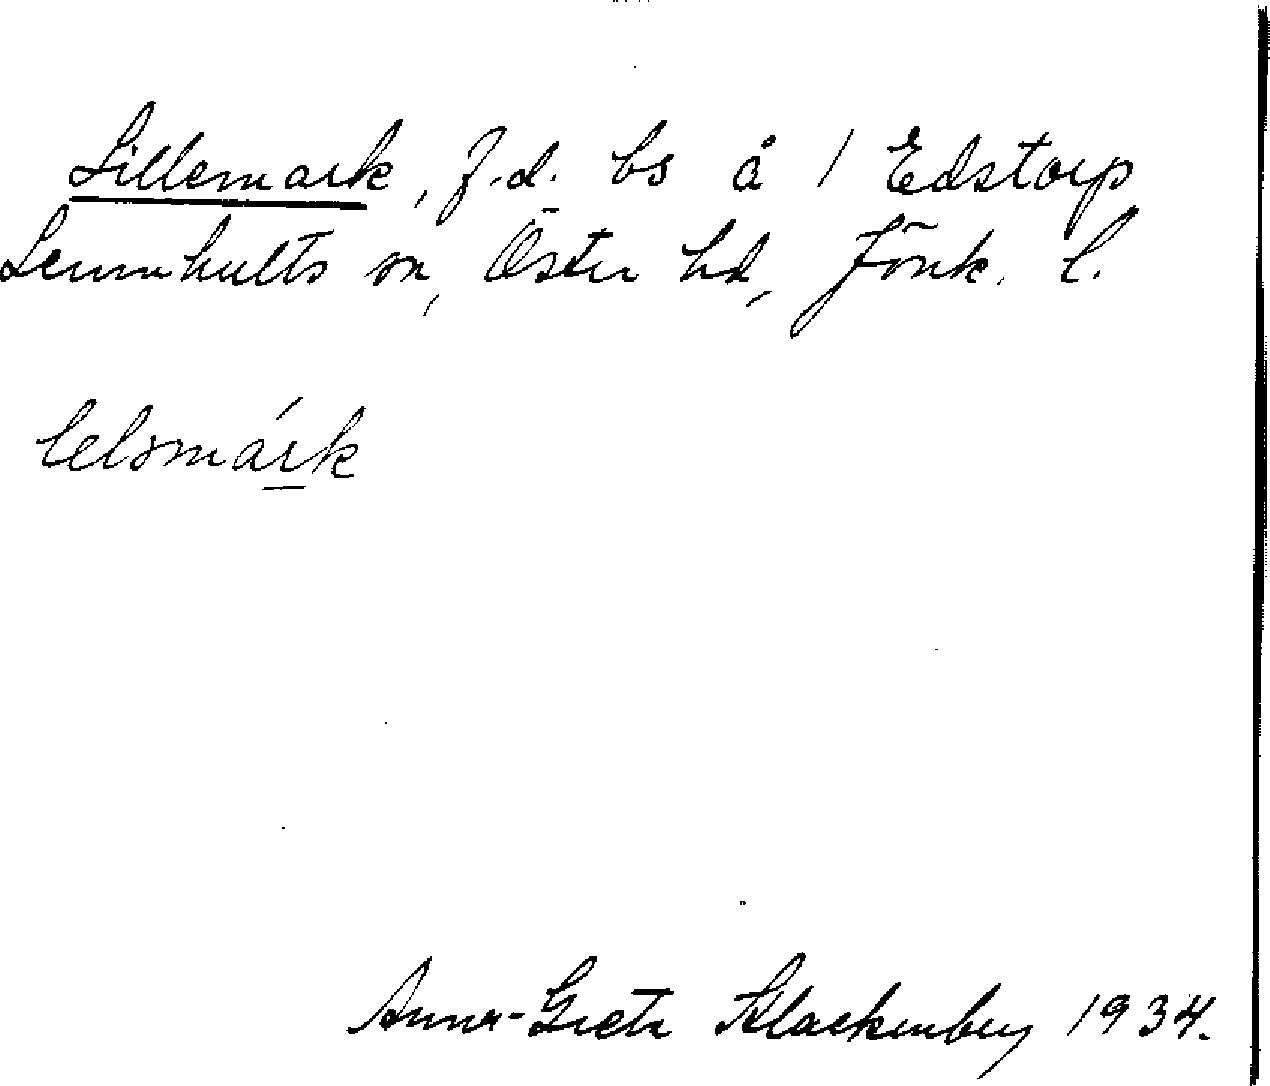 Lillemark, f.d. bs å / Edstorp
Lemnhults sn, Östra hd, Jönk. l.
lelsmárk
Anna-Greta Klackenberg 1934.